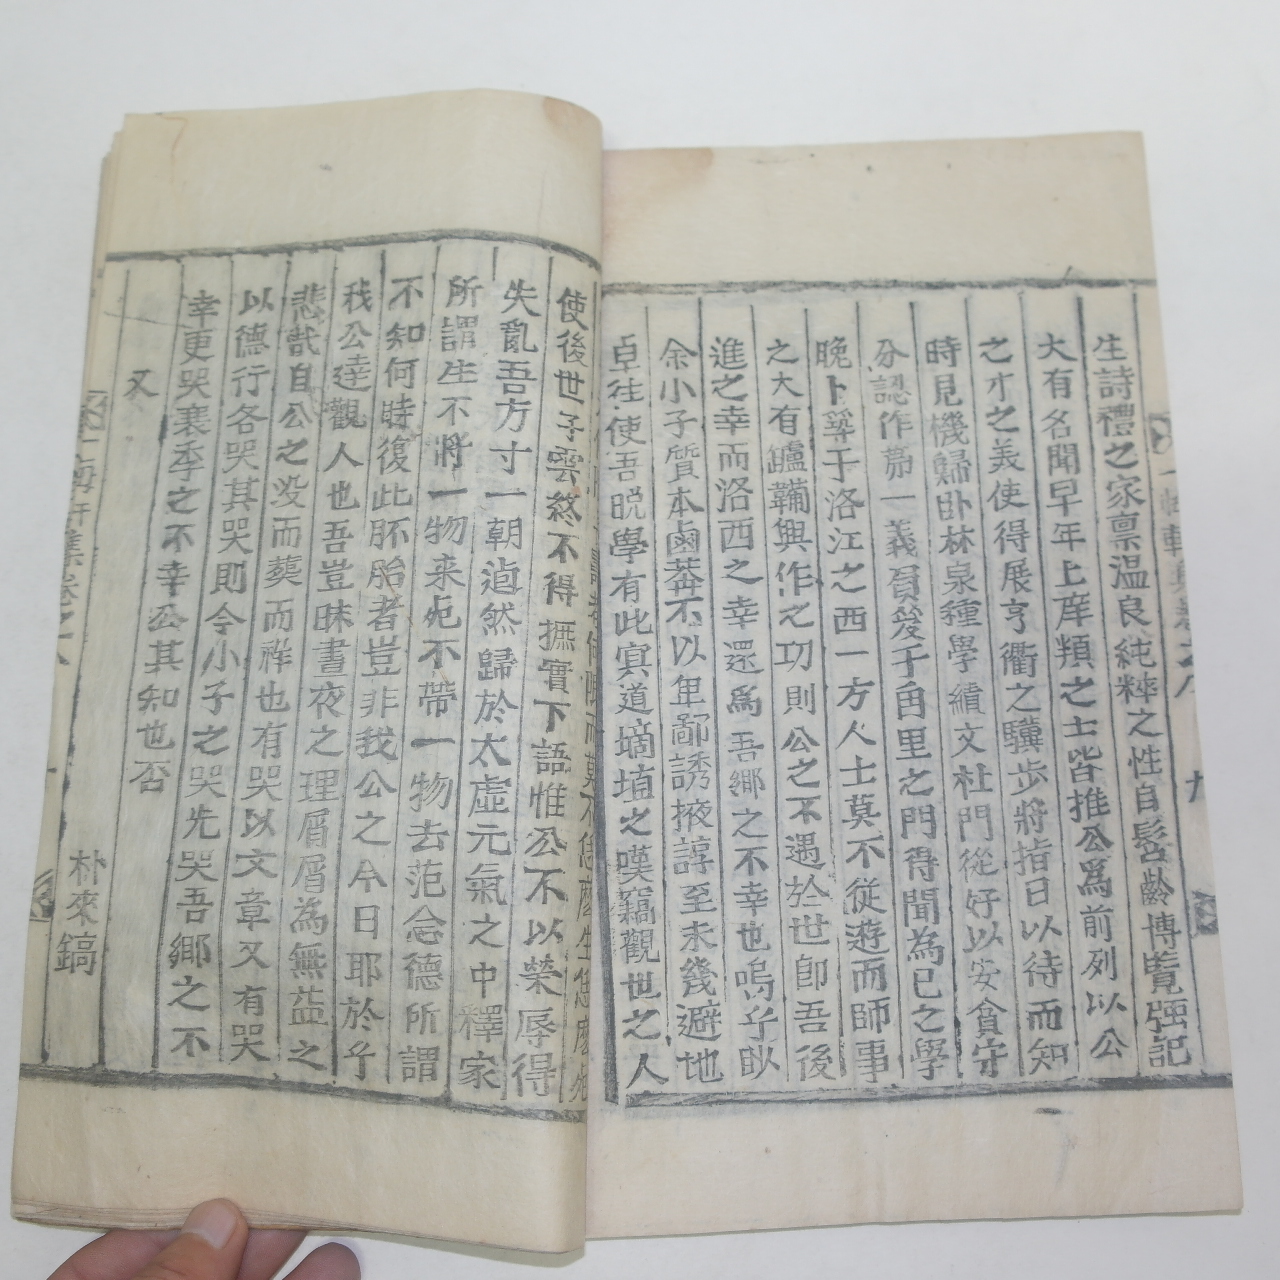 生詩禮之家禀溫良純粹之性自髫齡博覧强記
大有名聞早年上庠類之士皆推公爲前列以公
之才之義使得展亨衢之驥步將指日以待而知
時見機歸卧林泉種學績文杜門從好以安貧守
分認作第一義員笈于甪里之門得聞為己之學
晩卜築于洛江之西一方人士莫不從遊而師事
之大有鑪韛興作之功則公之不遇於世卽吾後
進之幸而洛西之幸還爲吾鄉之不幸也嗚乎㽗
余小子質本鹵莽不以卑鄙誘掖諄至未幾避地
卓往使吾晩學有此冥道擿埴之嘆竊觀世之人
使後世子雲終不得撫實下語惟公不以榮辱得
失亂吾方寸一朝逌然歸於太虛元氣之中釋家
所謂生不將一物来死不帶一物去范忿德所謂
不知何時復此胚胎者豈非我公之今日耶於乎
我公達觀人也吾豈昧晝夜之理屑屑為無益之
悲哉自公之没而葬而祥也有哭以文章又有哭
以德行各哭其哭則今小子之哭先哭吾鄉之不
幸更哭衰季之不幸公其知也否
又
朴來鎬
集卷之八